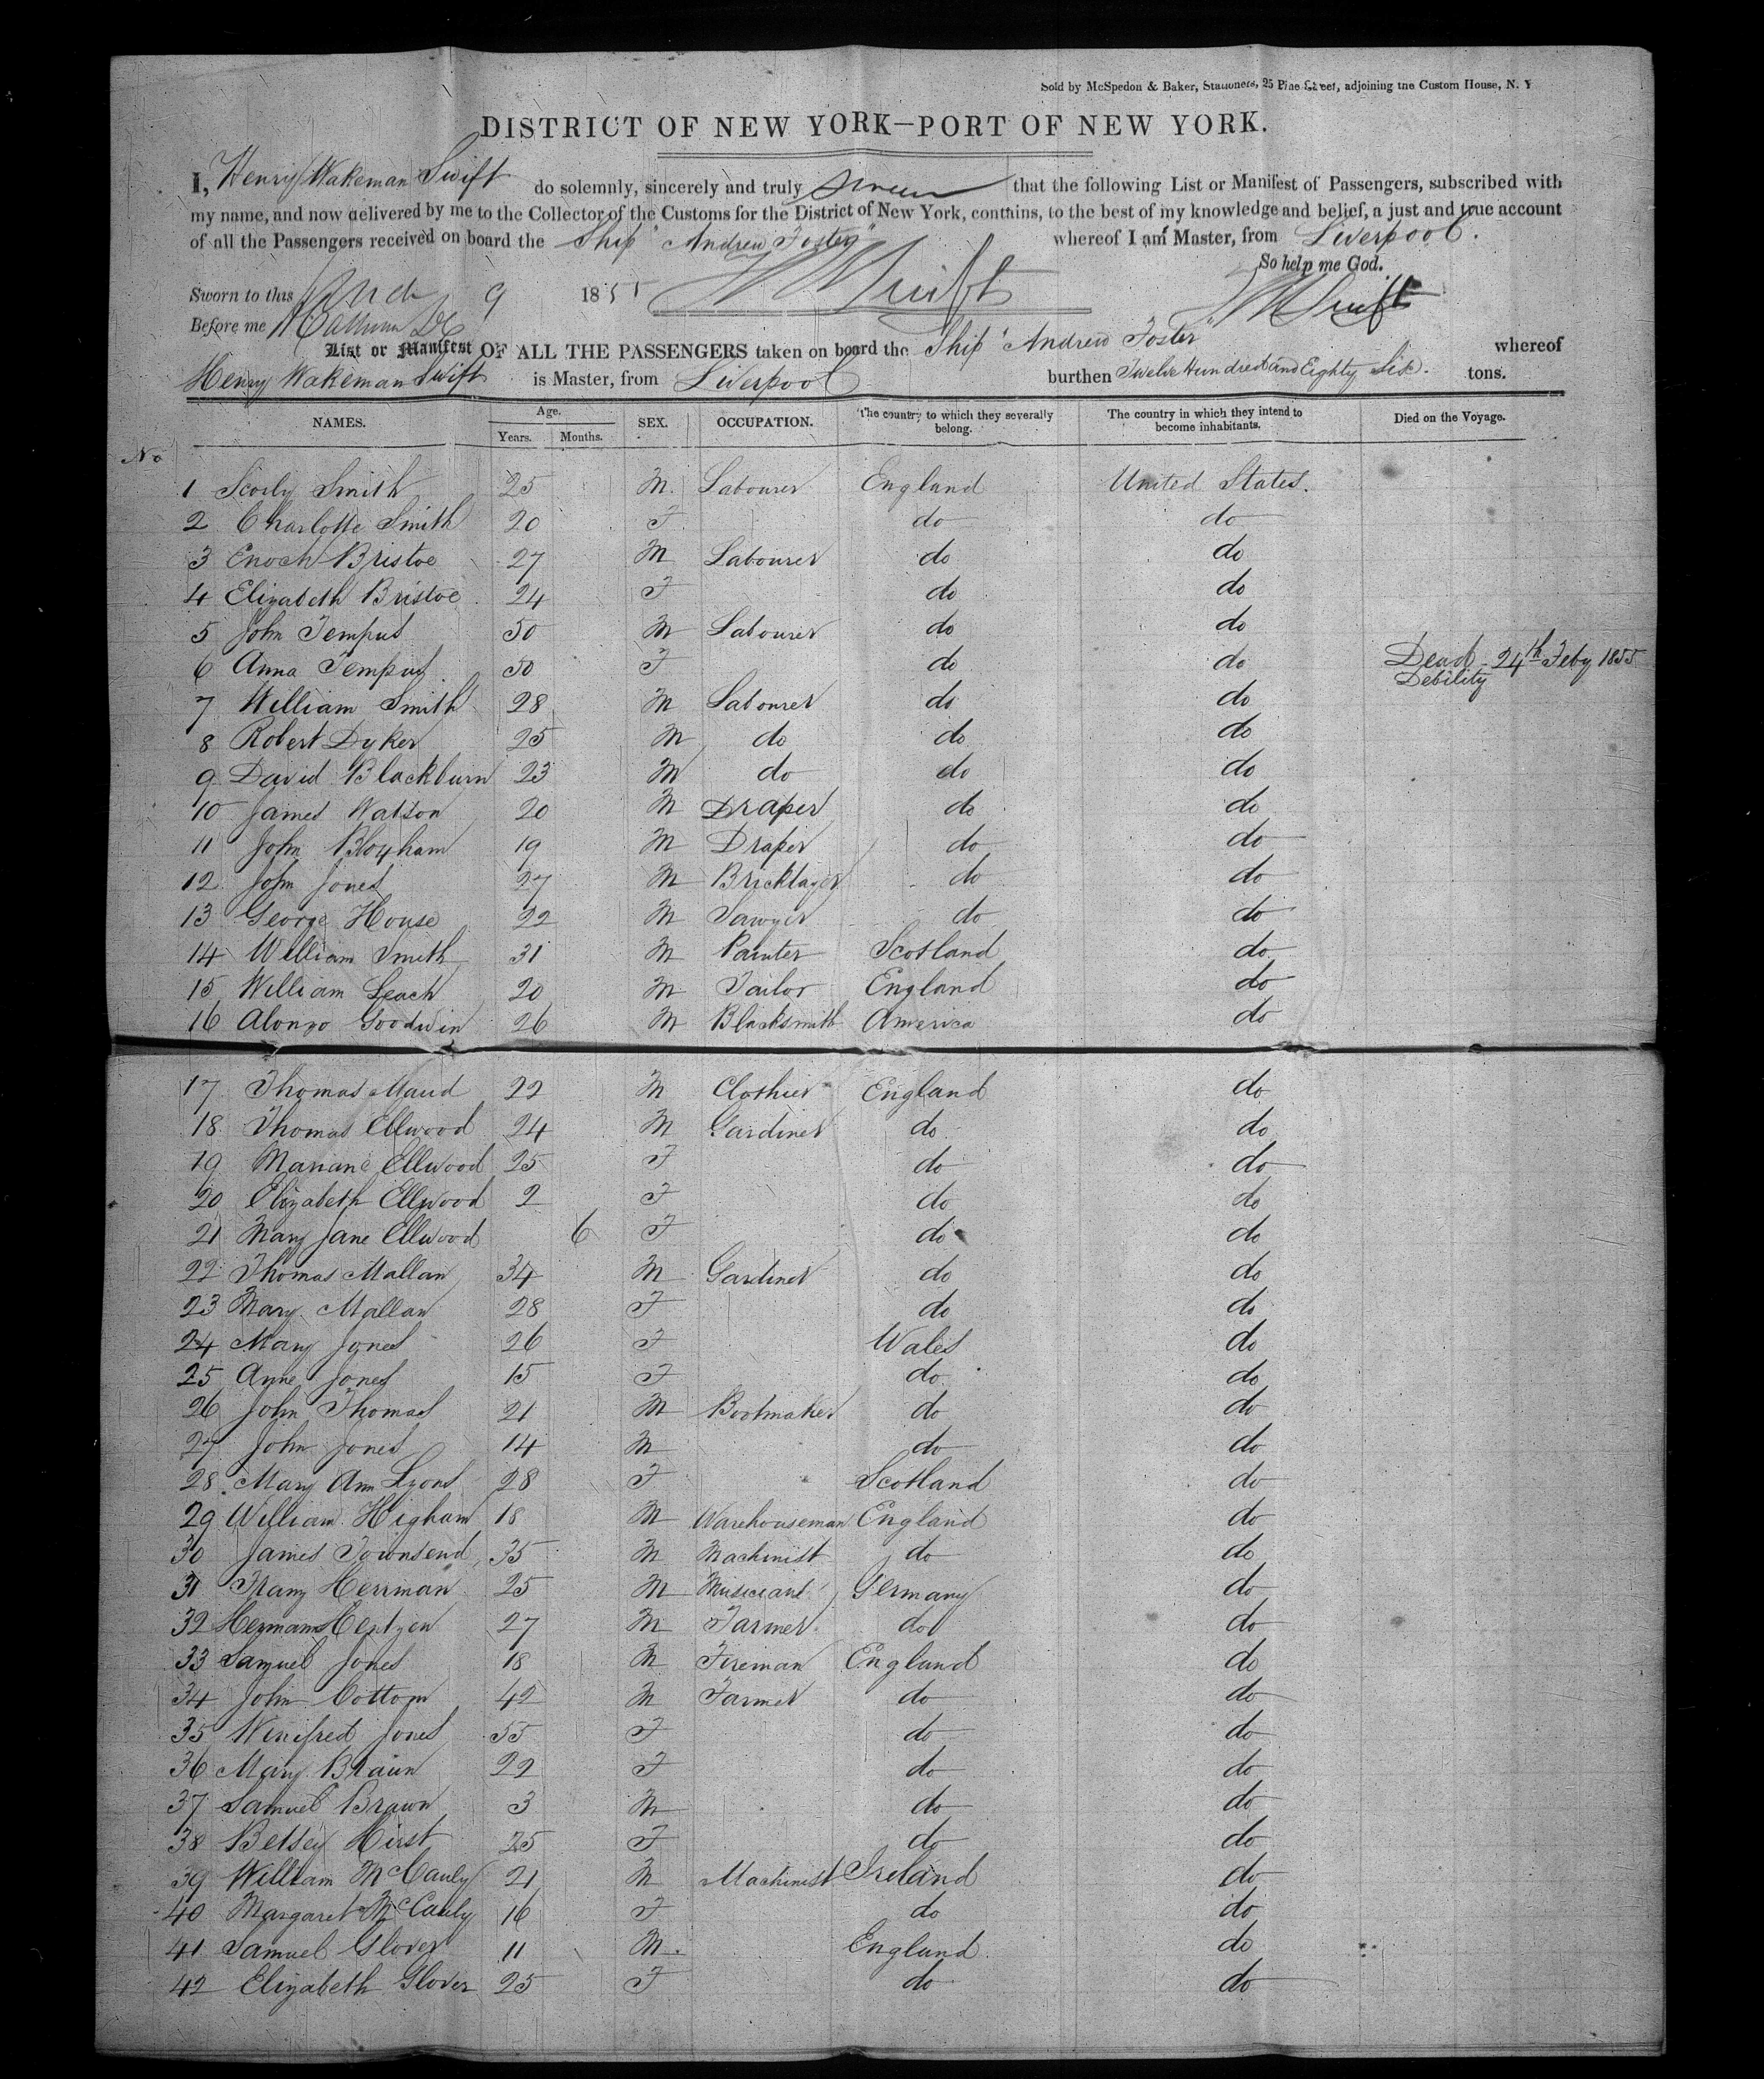 Sold by McSpedon & Baker, Stationers, 25 Pine Street, adjoining the Custom House, N. Y
DISTRICT OF NEW YORK—PORT OF NEW YORK.
I, Henry Wakeman Swift do solemnly, sincerely and truly swear that the following List or Manifest of Passengers, subscribed with
my name, and now delivered by me to the Collector of the Customs for the District of New York, contains, to the best of my knowledge and belief, a just and true account
of all the Passengers received on board the Ship "Andrew Foster" whereof I am Master, from Liverpool.
So help me God.
Sworn to this 9 1855 HWSwift HWSwift
Before me
List or Manifest OF ALL THE PASSENGERS taken on board the Ship "Andrew Foster" whereof
Henry Wakeman Swift is Master, from Liverpool burthen Twelve Hundred and Eighty Six. tons.
NAMES. Age. SEX. OCCUPATION. The country to which they severally belong. The country in which they intend to become inhabitants. Died on the Voyage.
Years. Months.
No
1 Smith 25 M. Labourer England United States.
2 Charlotte Smith 20 F do do
3 Enoch Bristoe 27 M Labourer do do
4 Elizabeth Bristoe 24 F do do
5 John Tempus 50 M Labourer do do
6 Anna Tempus 50 F do do Dead - 24th Feby 1855 Debility
7 William Smith 28 M Labourer do do
8 Robert Dyker 25 M do do do
9 David Blackburn 23 M do do do
10 James Watson 20 M Draper do do
11 John Bloxham 19 M Draper do do
12 John Jones 27 M Bricklayer do do
13 George House 22 M Sawyer do do
14 William Smith 31 M Painter Scotland do
15 William Leach 20 M Tailor England do
16 Alonzo Goodwin 26 M Blacksmith America do
17 Thomas Maud 22 M Clothier England do
18 Thomas Ellwood 24 M Gardiner do do
19 Mariane Ellwood 25 F do do
20 Elizabeth Ellwood 2 F do do
21 Mary Jane Ellwood 6 F do do
22 Thomas Mallan 34 M Gardiner do do
23 Mary Mallan 28 F do do
24 Mary Jones 26 F Wales do
25 Anne Jones 15 F do do
26 John Thomas 21 M Bootmaker do do
27 John Jones 14 M do do
28 Mary Ann Lyons 28 F Scotland do
29 William Higham 18 M Warehouseman England do
30 James Townsend 35 M Machinist do do
31 Franz Herrman 25 M Musiciant Germany do
32 Hermann Hentzen 27 M Farmer do do
33 Samuel Jones 18 M Fireman England do
34 John Cottom 42 M Farmer do do
35 Winifred Jones 55 F do do
36 Mary Braun 22 F do do
37 Samuel Brawn 3 M do do
38 Betsey Hirst 25 F do do
39 William McCauly 21 M Machinist Ireland do
40 Margaret McCauly 16 F do do
41 Samuel Glover 11 M. England do
42 Elizabeth Glover 25 F do do